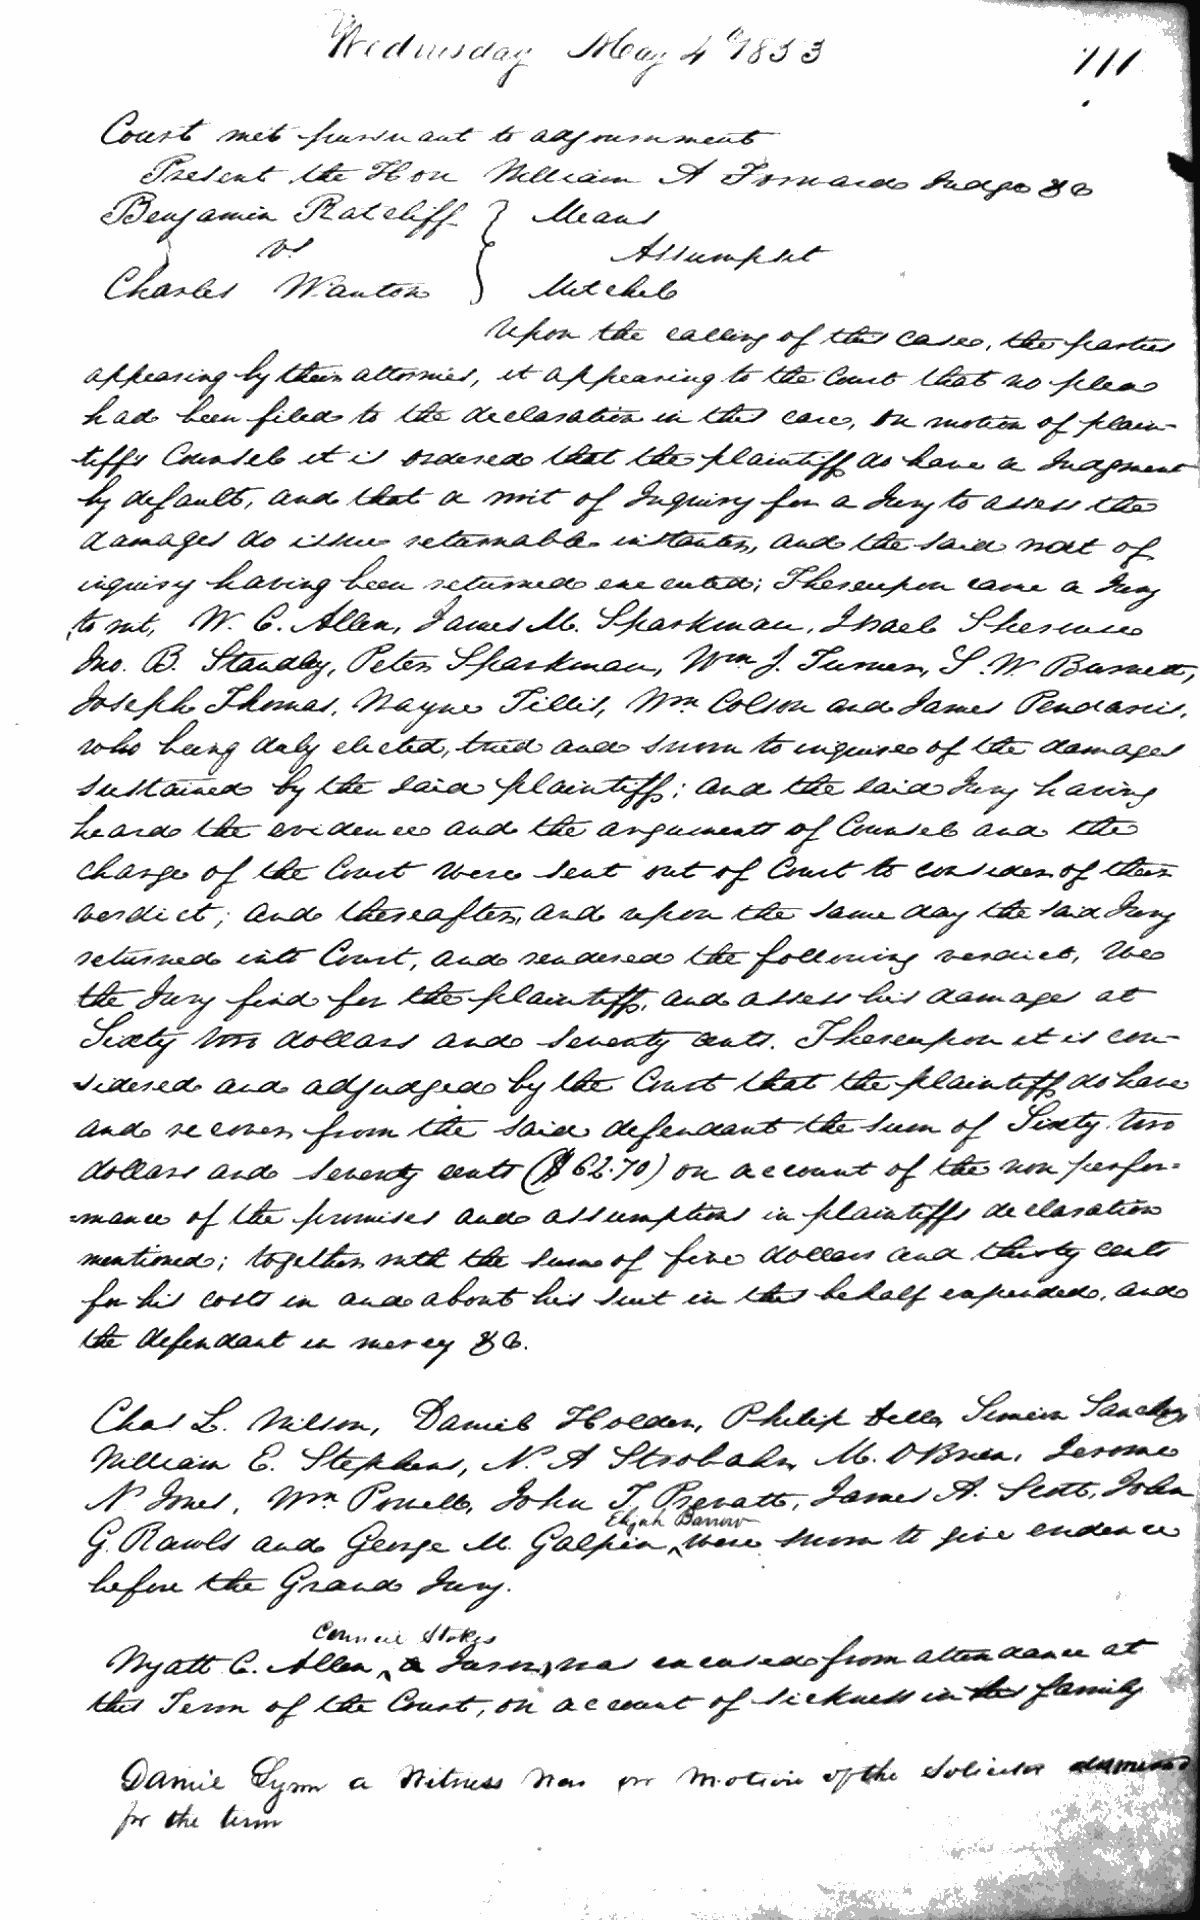 Wednesday May 4th 1853
111
Court met pursuant to adjournment
Present the Hon William A Forward Judge &c
Benjamin Ratcliff } Means
vs Assumpsit
Charles Wanton } Mitchel
Upon the calling of this case, the parties
appearing by their attornies, it appearing to the Court that no plea
had been filed to the declaration in this case, On motion of plain-
tiffs Counsel it is ordered that the plaintiff do have a Judgment
by default, and that a writ of Inquiry for a Jury to assess the
damages do issue returnable instanter, and the said writ of
inquiry having been returned executed; Thereupon came a Jury
to wit, W. C. Allen, James M. Sparkman, Israel
Jno. B. Standley, Peter Sparkman, Wm J. Turner, S. W. Burnett,
Joseph Thomas, Wayne Tillis, Wm Colson and James Pendarvis,
who being duly elected, tried and sworn to inquire of the damages
sustained by the said plaintiff; and the said Jury having
heard the evidence and the arguments of Counsel and the
charge of the Court were sent out of Court to consider of their
verdict; and thereafter, and upon the same day the said Jury
returned into Court, and rendered the following verdict, We
the Jury find for the plaintiff, and assess his damages at
Sixty two dollars and seventy cents. Thereupon it is con-
sidered and adjudged by the Court that the plaintiff do have
and recover from the said defendant the sum of Sixty two
dollars and seventy cents ($62.70) on account of the non perfor=
=mance of the promises and assumptions in plaintiffs declaration
mentioned; together with the sum of five dollars and thirty cents
for his costs in and about his suit in this behalf expended, and
the defendant in mercy &c.
Chas L. Wilson, Daniel Holden, Philip Dell, Simeon Sanchez
William E. Stephens, N. A Strobahn, M. OBrien, Jerome
N Jones, Wm Powell, John T. Prevatt, James A. Scott, John
Elijah Barrow
G. Rawls and George M. Galpin, ^were sworn to give evidence
before the Grand Jury.
Council Stokes
Wyatt C. Allen, ^a Juror, was excused from attendance at
this Term of the Court, on account of sickness in his family
Daniel Lynn a Witness was on motion of the Solicitor dismissed
for the term